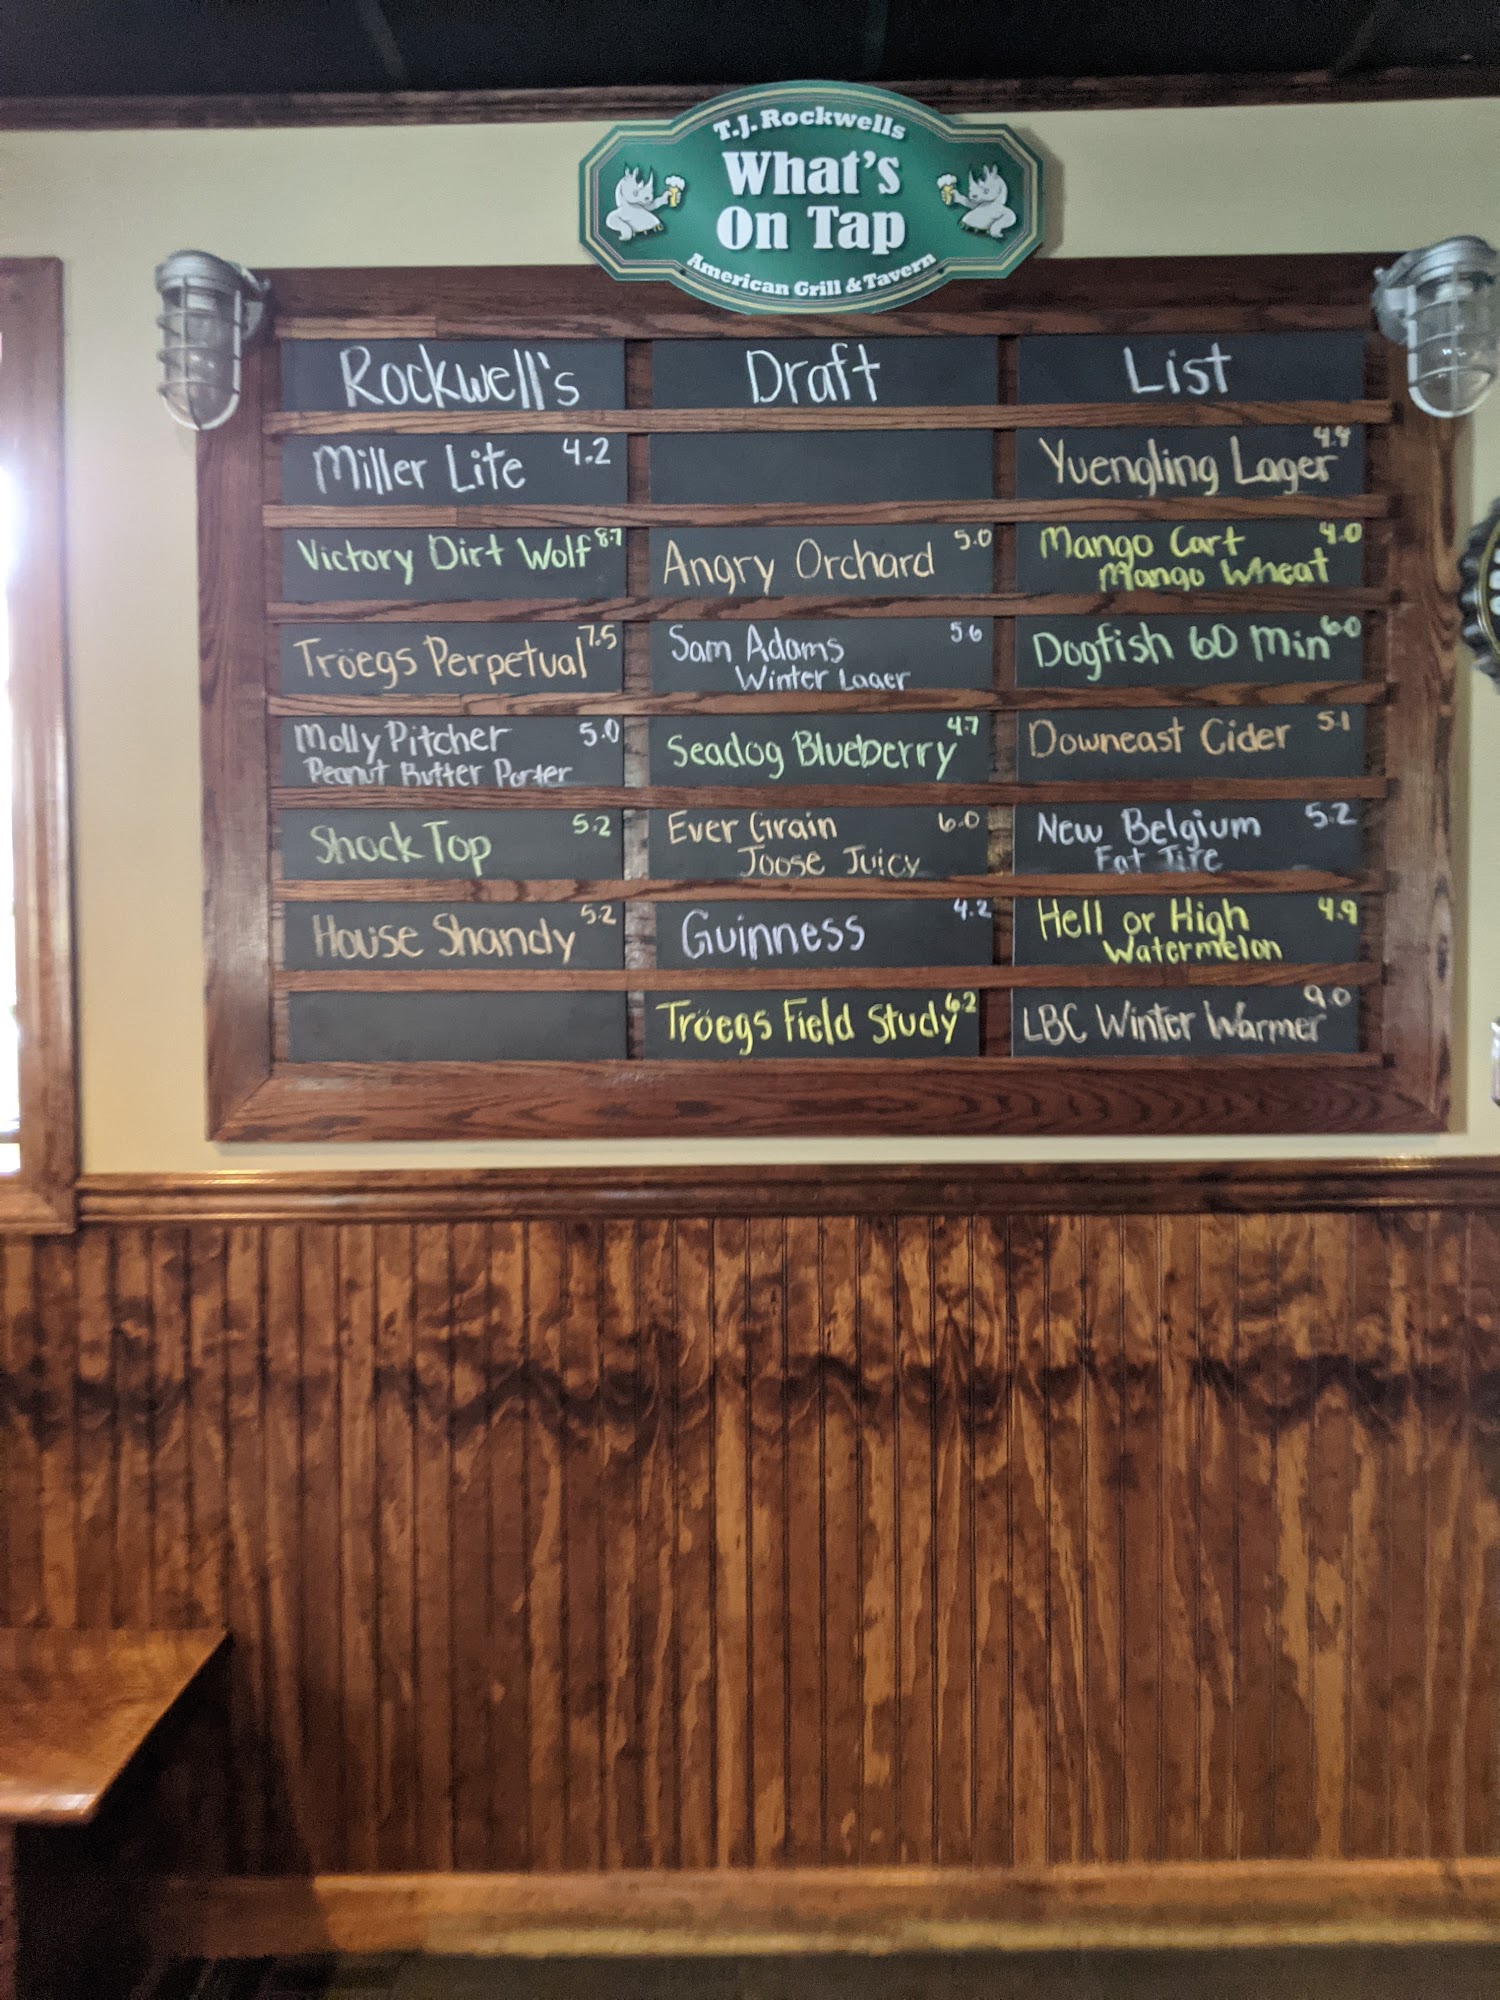 T.J. Rockwells
What's
On Tap
American Grill & Tavern
Rockwell's Draft List
Miller Lite 4.2
Yuengling Lager 4.4
Victory Dirt Wolf 8.7
Angry Orchard 5.0
Mango Cart 4.0
Mango Wheat
Tröegs Perpetual 7.5
Sam Adams 5.6
Winter Lager
Dogfish 60 Min 6.0
Molly Pitcher 5.0
Peanut Butter Porter
Seadog Blueberry 4.7
Downeast Cider 5.1
Shock Top 5.2
Ever Grain 6.0
Joose Juicy
New Belgium 5.2
Fat Tire
House Shandy 5.2
Guinness 4.2
Hell or High 4.9
Watermelon
Tröegs Field Study 6.2
LBC Winter Warmer 9.0